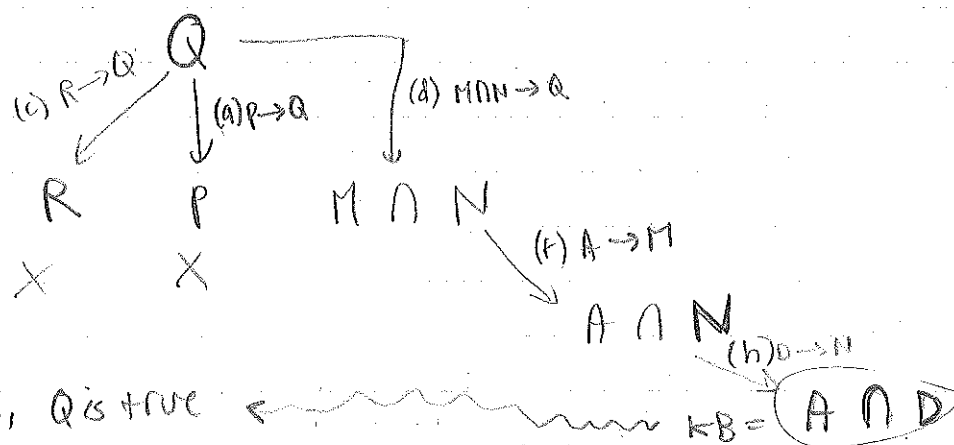 Q
(c) R→Q
(a) P→Q
(d) M∩N→Q
R P M ∩ N
X X
(f) A→M
A ∩ N
(h) D→N
, Q is true
KB = A ∩ D